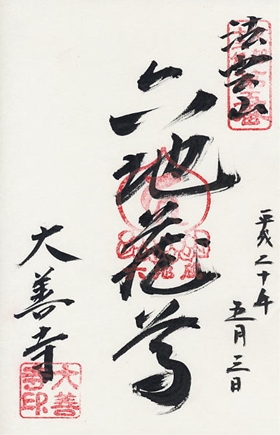 法雲山
平成二十年
五月三日
六地蔵尊
大善寺
大善
寺印